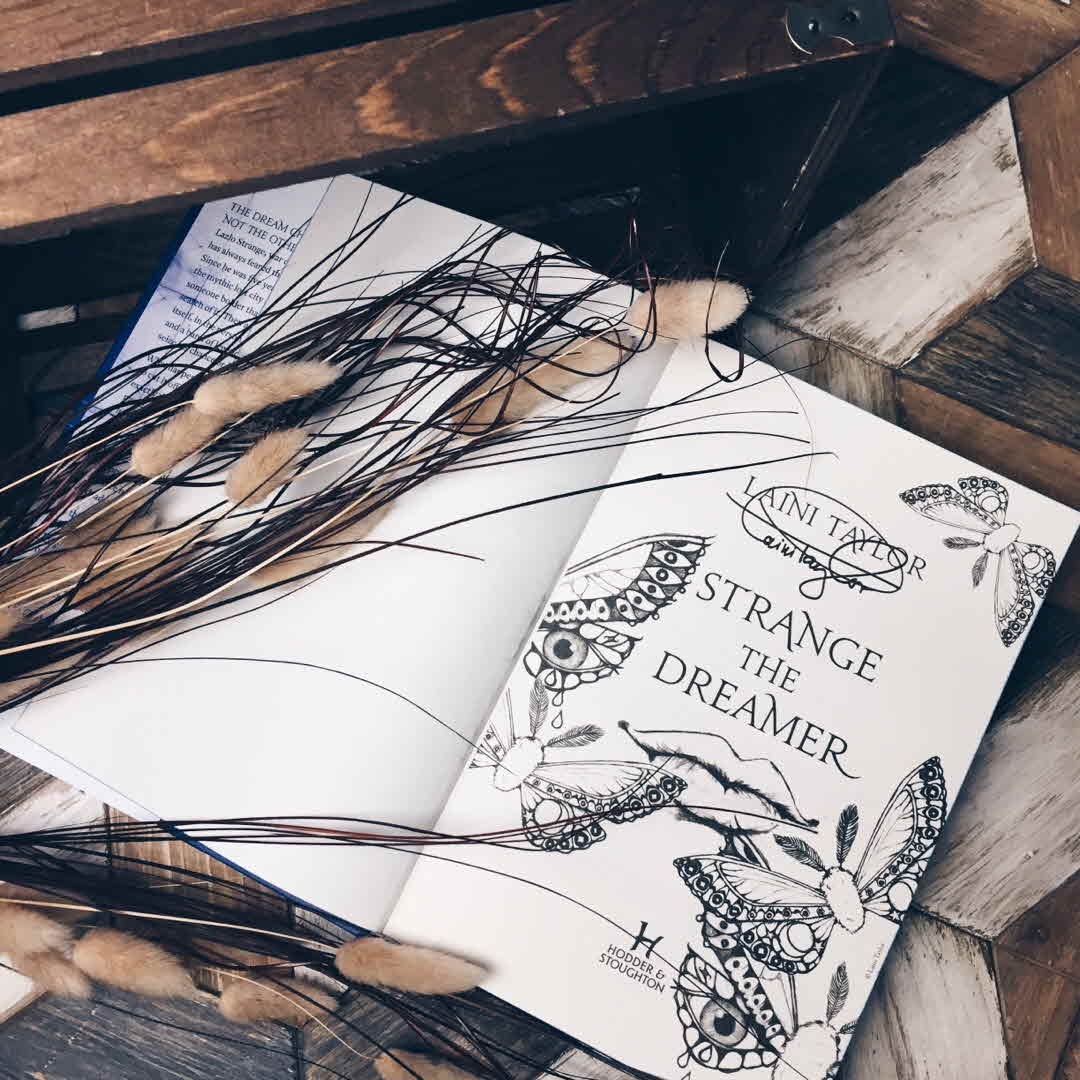 THE DREAM CH
NOT THE OTHE
Lazlo Strange, war o
has always feared th
Since he was five ye
the mythic lost city
someone bolder tha
search of it. The
itself, in the per
and a ba
seize
LAINI TAYLOR
laini taylor
STRANGE
THE
DREAMER
H
HODDER &
STOUGHTON